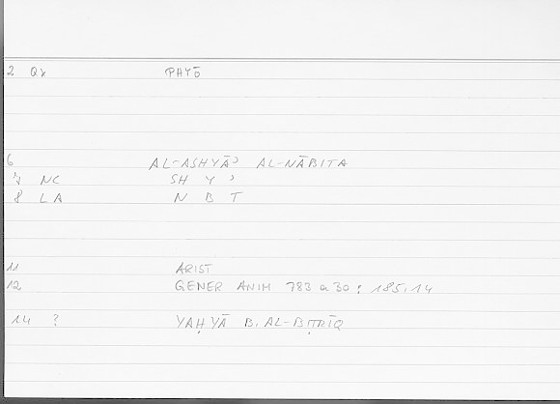 2 Qγ ΦΗΥΤΟ
6 AL-ASHYĀʾ AL-NĀBITA
7 NC SH Y ʾ
8 LA N B T
11 ARIST
12 GENER ANIM 783 a 30 : 185,14
14 ? YAḤYĀ B. AL-BIṬRĪQ